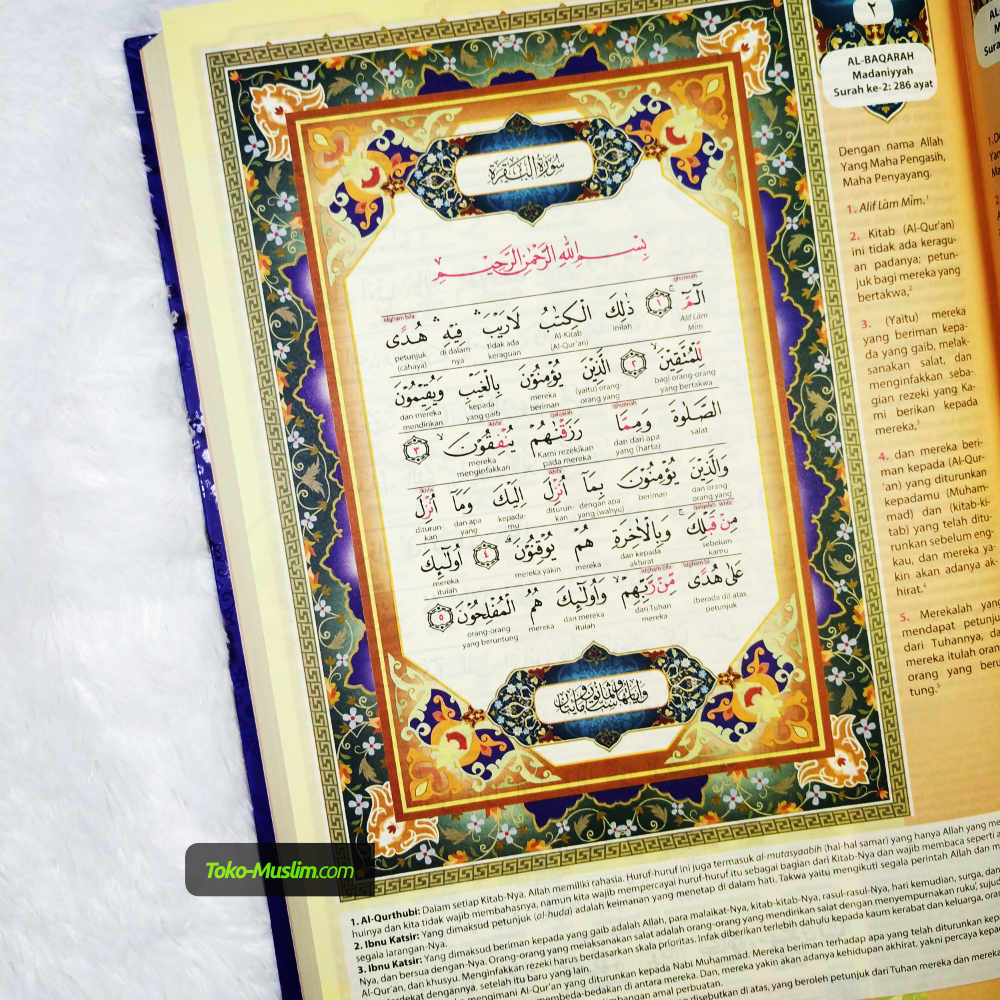 سُورَةُ الْبَقَرَةِ
بِسْمِ اللّٰهِ الرَّحْمٰنِ الرَّحِيْمِ
ghunnah
الۤمّۤ ۚ ١ ذٰلِكَ الْكِتٰبُ لَا رَيْبَ ۛ فِيْهِ ۛ هُدًى
Alif Lām Mīm inilah Al-Kitab (Al-Qur'an) tidak ada keraguan di dalam nya petunjuk (cahaya)
لِّلْمُتَّقِيْنَ ۙ ٢ الَّذِيْنَ يُؤْمِنُوْنَ بِالْغَيْبِ وَيُقِيْمُوْنَ
bagi orang-orang yang bertakwa (yaitu) orang-orang yang mereka beriman kepada yang gaib dan mereka mendirikan
الصَّلٰوةَ وَمِمَّا رَزَقْنٰهُمْ يُنْفِقُوْنَ ۙ ٣
salat dan dari apa yang (harta) Kami rezekikan pada mereka mereka menginfakkan
وَالَّذِيْنَ يُؤْمِنُوْنَ بِمَآ اُنْزِلَ اِلَيْكَ وَمَآ اُنْزِلَ
dan orang orang yang beriman dengan apa yang (wahyu) diturun-kan kepada-mu dan apa yang diturun kan
مِنْ قَبْلِكَ ۚ وَبِالْاٰخِرَةِ هُمْ يُوْقِنُوْنَ ۗ ٤ اُولٰۤىِٕكَ
sebelum kamu dan kepada akhirat mereka mereka yakin mereka itulah
عَلٰى هُدًى مِّنْ رَّبِّهِمْ ۙ وَاُولٰۤىِٕكَ هُمُ الْمُفْلِحُوْنَ ٥
(berada di) atas petunjuk dari Tuhan mereka dan mereka itulah mereka orang-orang yang beruntung
٢
AL-BAQARAH
Madaniyyah
Surah ke-2: 286 ayat
Dengan nama Allah
Yang Maha Pengasih,
Maha Penyayang.
1. Alif Lām Mīm.¹
2. Kitab (Al-Qur'an)
ini tidak ada keragu-
an padanya; petun-
juk bagi mereka yang
bertakwa,²
3. (Yaitu) mereka
yang beriman kepa-
da yang gaib, melak-
sanakan salat, dan
menginfakkan seba-
gian rezeki yang Ka-
mi berikan kepada
mereka,³
4. dan mereka beri-
man kepada (Al-Qur-
'an) yang diturunkan
kepadamu (Muham-
mad) dan (kitab-ki-
tab) yang telah ditu-
runkan sebelum eng-
kau, dan mereka ya-
kin akan adanya ak-
hirat.⁴
5. Merekalah yang
mendapat petunjuk
dari Tuhannya, dan
mereka itulah orang-
orang yang berun-
tung.⁵
Toko-Muslim.com
1. Al-Qurthubi: Dalam setiap Kitab-Nya, Allah memiliki rahasia. Huruf-huruf ini juga termasuk al-mutasyabih (hal-hal samar) yang hanya Allah yang me
huinya dan kita tidak wajib membahasnya, namun kita wajib mempercayai huruf-huruf itu sebagai bagian dari Kitab-Nya dan wajib membaca seperti
2. Ibnu Katsir: Yang dimaksud petunjuk (al-huda) adalah keimanan yang menetap di dalam hati. Takwa yaitu mengikuti segala perintah Allah dan
segala larangan-Nya.
3. Ibnu Katsir: Yang dimaksud beriman kepada yang gaib adalah Allah, para malaikat-Nya, kitab-kitab-Nya, rasul-rasul-Nya, hari kemudian, surga, dan
Nya, dan bersua dengan-Nya. Orang-orang yang melaksanakan salat adalah orang-orang yang mendirikan salat dengan menyempurnakan ruku', sujud
Al-Qur'an, dan khusyu. Menginfakkan rezeki harus berdasarkan skala prioritas. Infak diberikan terlebih dahulu kepada kaum kerabat dan keluarga,
terdekat dengannya, setelah itu baru yang lain.
mengimani Al-Qur'an yang diturunkan kepada Nabi Muhammad. Mereka beriman terhadap apa yang telah diturunkan
membeda-bedakan di antara mereka. Dan, mereka yakin akan adanya kehidupan akhirat, yakni percaya
amal perbuatan.
disebutkan di atas, yang beroleh petunjuk dari Tuhan mereka dan